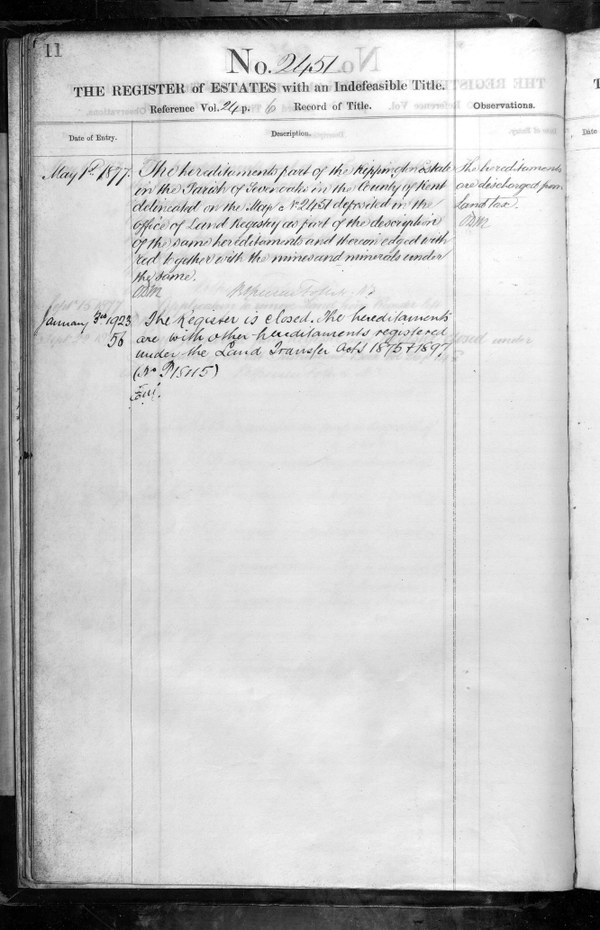 11
No. 2451
THE REGISTER of ESTATES with an Indefeasible Title.
Reference Vol. 24 p. 6 Record of Title.
Observations.
Date of Entry.
Description.
May 1st 1877.
The hereditaments part of the Kippington estate
in the Parish of Sevenoaks in the County of Kent
delineated on the Map No 2451 deposited in the
office of Land Registry as part of the description
of the same hereditaments and thereon edged with
red together with the mines and minerals under
the same.
The hereditaments
are discharged from
Land tax.
January 3rd 1923
56
The Register is closed. The hereditaments
are with other hereditaments registered
under the Land Transfer Acts 1875 & 1897
(No P15115)